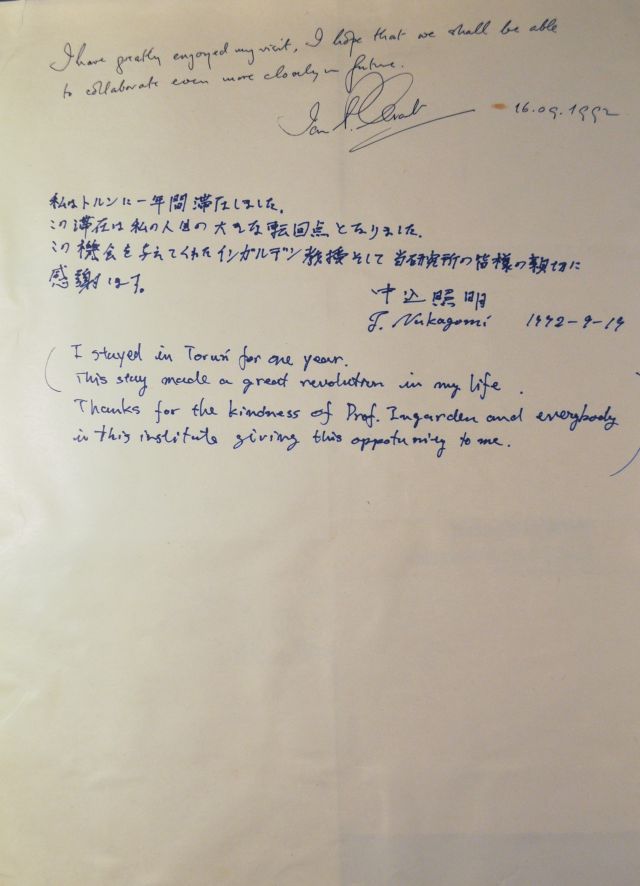 I have greatly enjoyed my visit, I hope that we shall be able
to collaborate even more closely in future.
16.09.1992
私はトルンに一年間滞在しました。
この滞在は私の人生の大きな転回点となりました。
この機会を与えてくれたインガルデン教授そして当研究所の皆様の親切に
感謝します。
中込照明
T. Nakagomi 1992-9-19
( I stayed in Toruń for one year.
This stay made a great revolution in my life.
Thanks for the kindness of Prof. Ingarden and everybody
in this institute giving this oppotunity to me. )